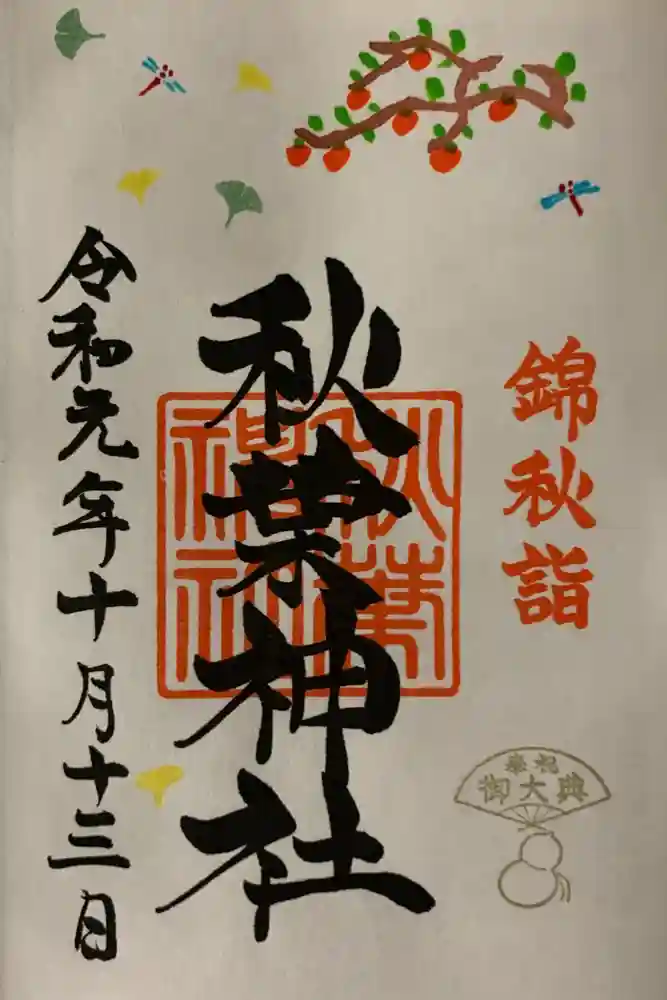 錦秋詣
秋葉神社
秋葉
神社
令和元年十月十三日
奉祝
御大典